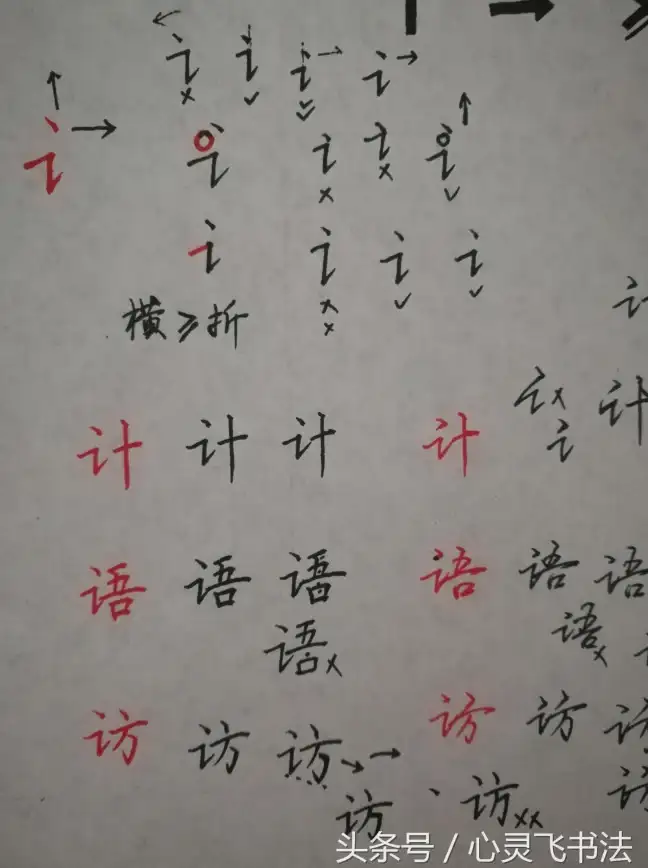 讠 讠 讠 讠
讠 讠 讠 讠 讠
讠 讠 讠 讠
横≥折
讠
讠
计 计 计 计 讠 计
讠
语 语 语 语 语 语
语 语
访 访 访 访 访 访
访 访 访
头条号 / 心灵飞书法